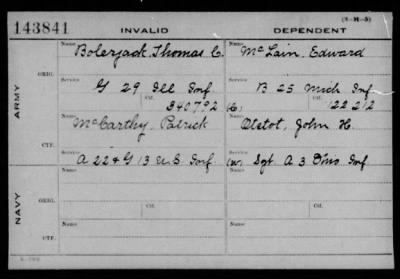 (3-H-5)
143841 INVALID DEPENDENT
Name Bolerjack, Thomas C. Name McLain, Edward
ORIG.
Service Service
G 29 Ill Inf. B 25 Mich Inf
Ctf. 340792 (C) Ctf. 122212
ARMY
Name McCarthy, Patrick Name Olstot, John H.
CTF.
Service Service
A 22 & G 13 U.S. Inf. (W) Sgt. A 3 Inf
Name Name
ORIG.
NAVY
Service Service
Ctf. Ctf.
Name Name
CTF.